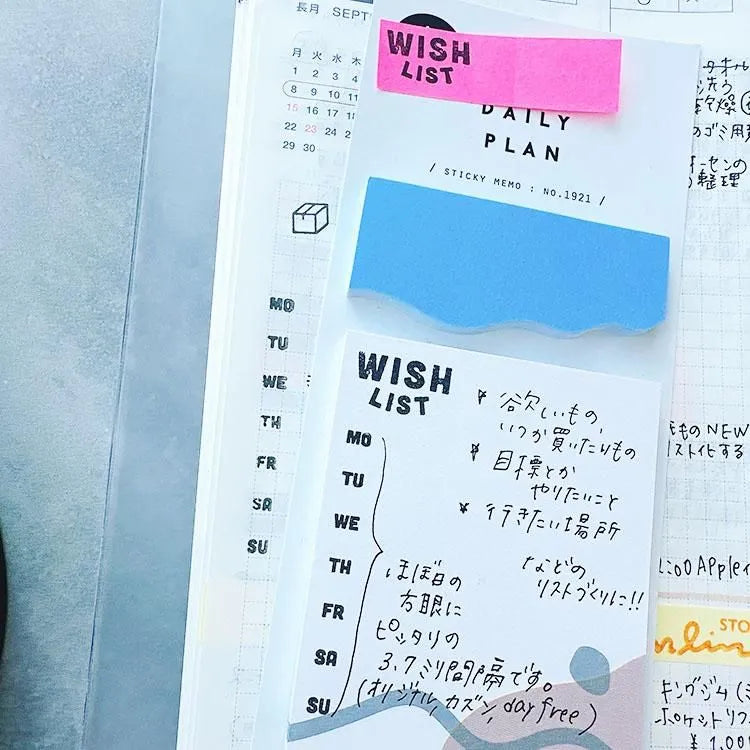 長月 SEPT
月 火 水 木
1 2 3 4
8 9 10 11
15 16 17 18
22 23 24 25
29 30
MO
TU
WE
TH
FR
SA
SU
WISH
LIST
DAILY
PLAN
/ STICKY MEMO : NO.1921 /
WISH
LIST
MO
TU
WE
TH
FR
SA
SU
* 欲しいもの、
いつか買いたいもの
* 目標とか
やりたいこと
* 行きたい場所
などの
リストづくりに!!
ほぼ日の
方眼に
ピッタリの
3.7ミリ間隔です。
(オリジナル,カズン,day free)
タオル
洗う
乾燥
のゴミ用
整理
ものNEW
スト化する
Apple
STO
キングジム
ポケットリフ